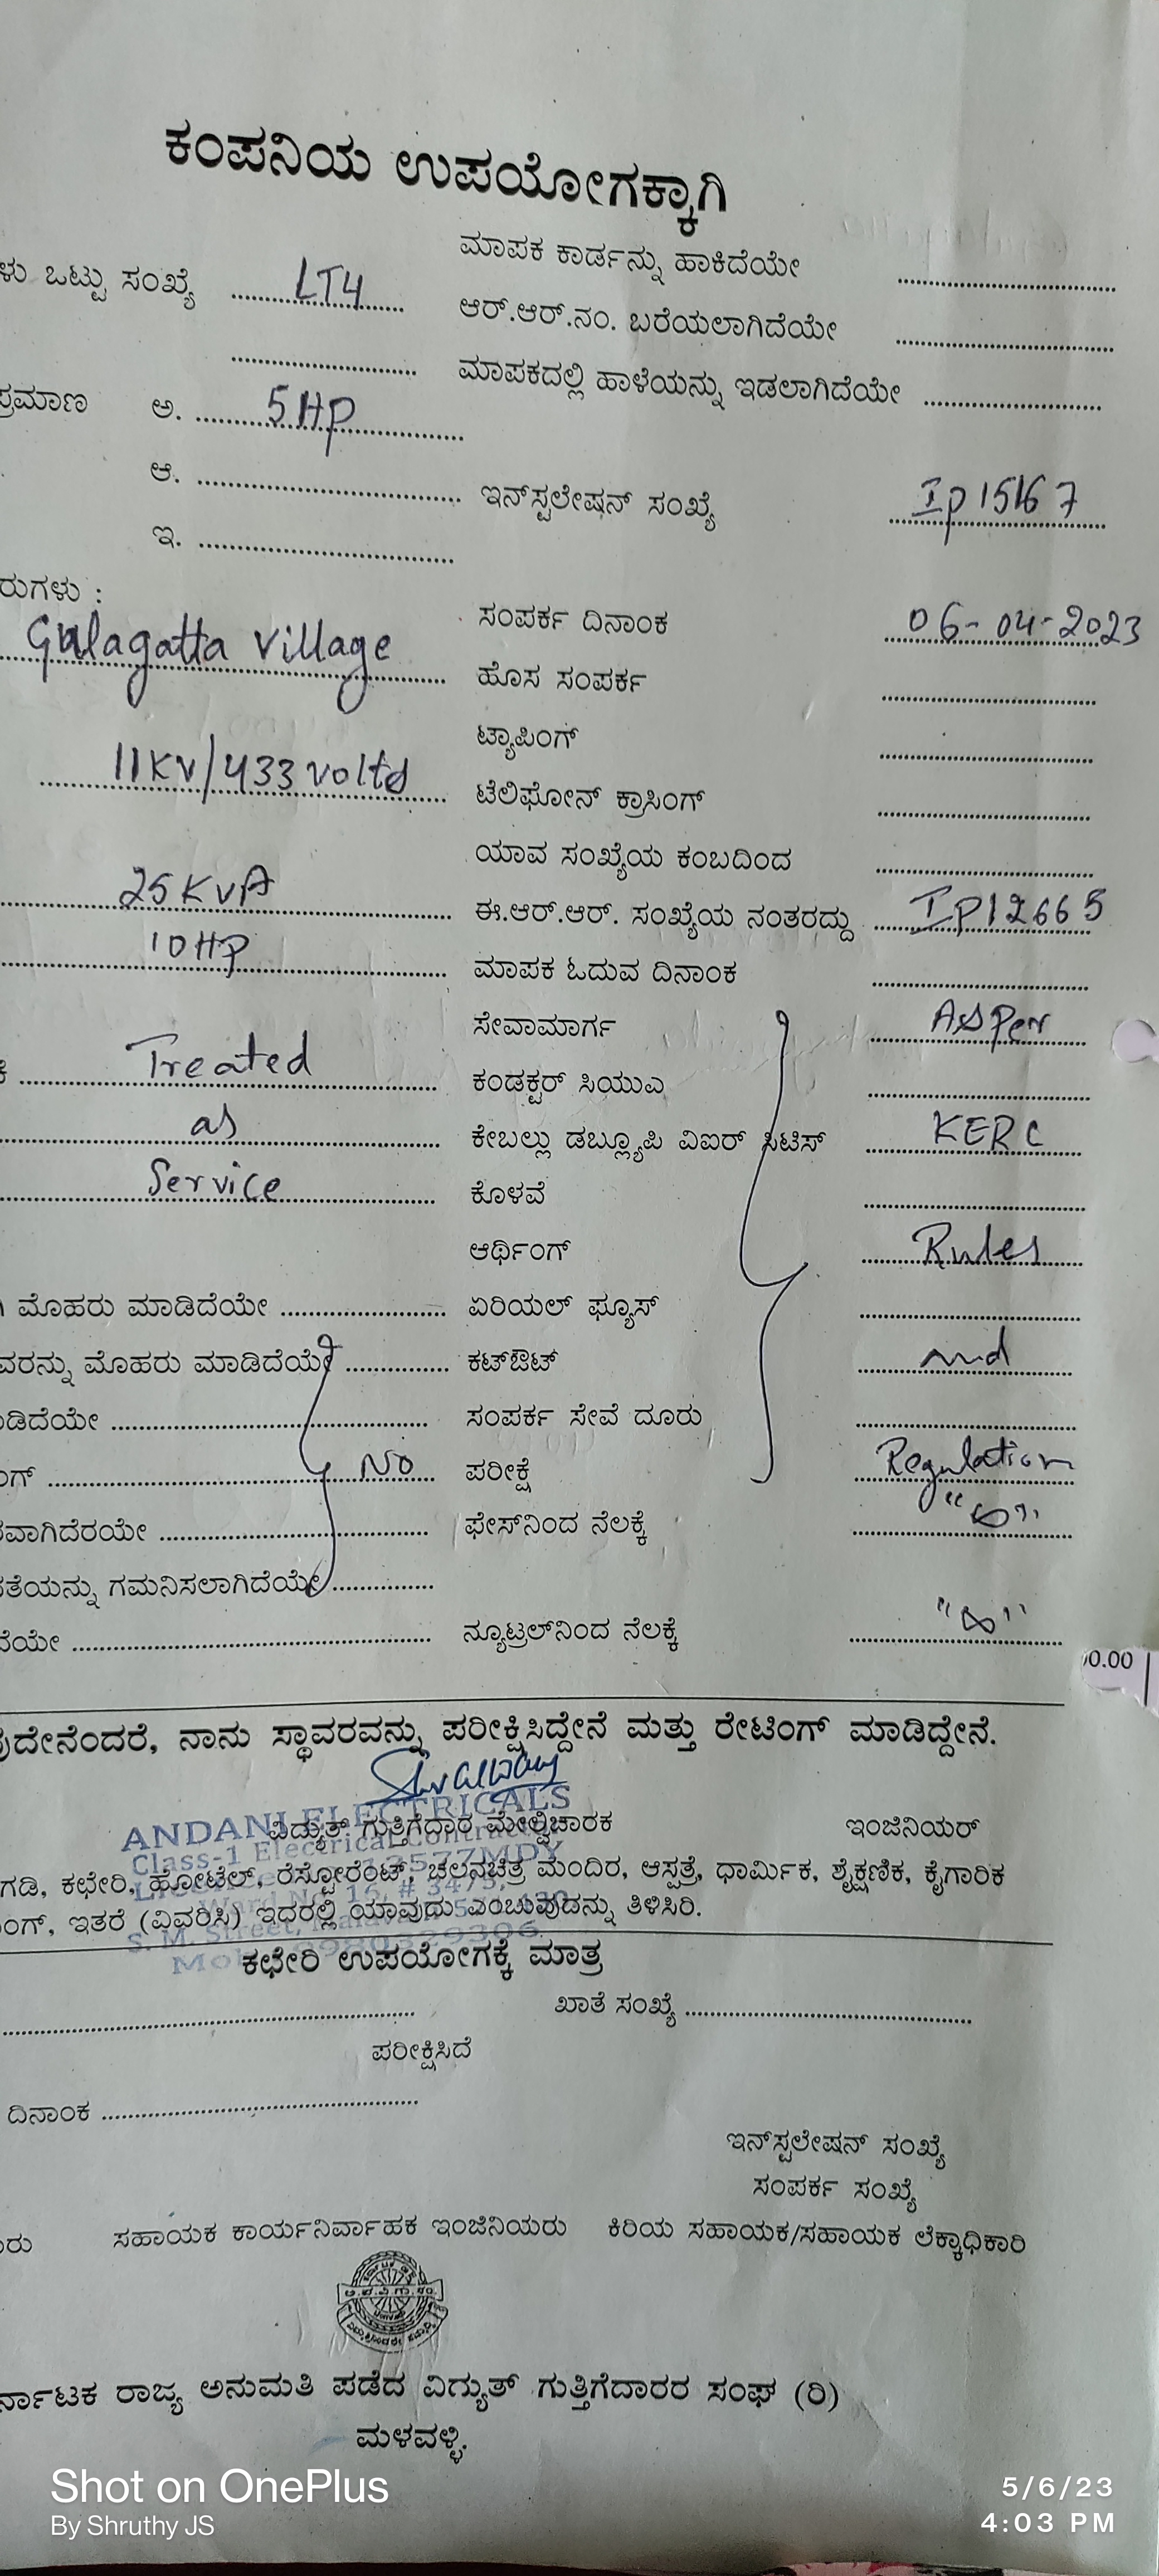 ಕಂಪನಿಯ ಉಪಯೋಗಕ್ಕಾಗಿ
ಳು ಒಟ್ಟು ಸಂಖ್ಯೆ LT4 ಮಾಪಕ ಕಾರ್ಡನ್ನು ಹಾಕಿದೆಯೇ
ಆರ್.ಆರ್.ನಂ. ಬರೆಯಲಾಗಿದೆಯೇ
ಮಾಪಕದಲ್ಲಿ ಹಾಳೆಯನ್ನು ಇಡಲಾಗಿದೆಯೇ
ಪ್ರಮಾಣ ಅ. 5HP
ಆ. ಇನ್‌ಸ್ಟಲೇಷನ್ ಸಂಖ್ಯೆ IP15167
ಇ.
ರುಗಳು :
Gulagatta Village ಸಂಪರ್ಕ ದಿನಾಂಕ 06-04-2023
ಹೊಸ ಸಂಪರ್ಕ
ಟ್ಯಾಪಿಂಗ್
11KV/433 volts ಟೆಲಿಫೋನ್ ಕ್ರಾಸಿಂಗ್
ಯಾವ ಸಂಖ್ಯೆಯ ಕಂಬದಿಂದ
25 KVA ಈ.ಆರ್.ಆರ್. ಸಂಖ್ಯೆಯ ನಂತರದ್ದು IP12665
10HP ಮಾಪಕ ಓದುವ ದಿನಾಂಕ
ಸೇವಾಮಾರ್ಗ As Per
Treated ಕಂಡಕ್ಟರ್ ಸಿಯುಎ
as ಕೇಬಲ್ಲು ಡಬ್ಲ್ಯೂಪಿ ವಿಐರ್ ಸಿಟಿಸ್ KERC
Service ಕೊಳವೆ
ಆರ್ಥಿಂಗ್ Rules
ಮೊಹರು ಮಾಡಿದೆಯೇ ಏರಿಯಲ್ ಫ್ಯೂಸ್
ವರನ್ನು ಮೊಹರು ಮಾಡಿದೆಯೆ ಕಟ್‌ಔಟ್ and
ಡಿದೆಯೇ ಸಂಪರ್ಕ ಸೇವೆ ದೂರು
ಂಗ್ No ಪರೀಕ್ಷೆ Regulation
ವಾಗಿದೆರಯೇ ಫೇಸ್‌ನಿಂದ ನೆಲಕ್ಕೆ "∞"
ತೆಯನ್ನು ಗಮನಿಸಲಾಗಿದೆಯೇ
ೆಯೇ ನ್ಯೂಟ್ರಲ್‌ನಿಂದ ನೆಲಕ್ಕೆ "∞"
00.00
ುದೇನೆಂದರೆ, ನಾನು ಸ್ಥಾವರವನ್ನು ಪರೀಕ್ಷಿಸಿದ್ದೇನೆ ಮತ್ತು ರೇಟಿಂಗ್ ಮಾಡಿದ್ದೇನೆ.
ANDANI ELECTRICALS
ವಿದ್ಯುತ್ ಗುತ್ತಿಗೆದಾರ ಮೇಲ್ವಿಚಾರಕ ಇಂಜಿನಿಯರ್
Class-1 Electrical Contractor
ಗಡಿ, ಕಛೇರಿ, ಹೋಟೆಲ್, ರೆಸ್ಟೋರೆಂಟ್, ಚಲನಚಿತ್ರ ಮಂದಿರ, ಆಸ್ಪತ್ರೆ, ಧಾರ್ಮಿಕ, ಶೈಕ್ಷಣಿಕ, ಕೈಗಾರಿಕ
ಂಗ್, ಇತರೆ (ವಿವರಿಸಿ) ಇದರಲ್ಲಿ ಯಾವುದು ಎಂಬುವುದನ್ನು ತಿಳಿಸಿರಿ.
ಕಛೇರಿ ಉಪಯೋಗಕ್ಕೆ ಮಾತ್ರ
ಖಾತೆ ಸಂಖ್ಯೆ
ಪರೀಕ್ಷಿಸಿದೆ
ದಿನಾಂಕ
ಇನ್‌ಸ್ಟಲೇಷನ್ ಸಂಖ್ಯೆ
ಸಂಪರ್ಕ ಸಂಖ್ಯೆ
ರು ಸಹಾಯಕ ಕಾರ್ಯನಿರ್ವಾಹಕ ಇಂಜಿನಿಯರು ಕಿರಿಯ ಸಹಾಯಕ/ಸಹಾಯಕ ಲೆಕ್ಕಾಧಿಕಾರಿ
ರ್ನಾಟಕ ರಾಜ್ಯ ಅನುಮತಿ ಪಡೆದ ವಿದ್ಯುತ್ ಗುತ್ತಿಗೆದಾರರ ಸಂಘ (ರಿ)
ಮಳವಳ್ಳಿ.
Shot on OnePlus 5/6/23
By Shruthy JS 4:03 PM